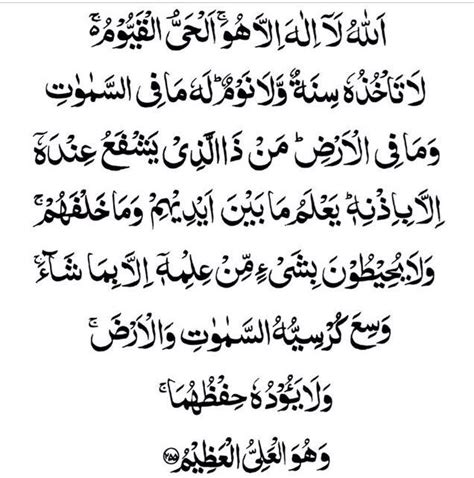 اَللّٰهُ لَاۤ اِلٰهَ اِلَّا هُوَۚ اَلْحَیُّ الْقَیُّوْمُ ۚ۬
لَا تَاْخُذُهٗ سِنَةٌ وَّلَا نَوْمٌؕ لَهٗ مَا فِی السَّمٰوٰتِ
وَمَا فِی الْاَرْضِؕ مَنْ ذَا الَّذِیْ یَشْفَعُ عِنْدَهٗۤ
اِلَّا بِاِذْنِهٖؕ یَعْلَمُ مَا بَیْنَ اَیْدِیْهِمْ وَمَا خَلْفَهُمْۚ
وَلَا یُحِیْطُوْنَ بِشَیْءٍ مِّنْ عِلْمِهٖۤ اِلَّا بِمَا شَآءَۚ
وَسِعَ كُرْسِیُّهُ السَّمٰوٰتِ وَالْاَرْضَۚ
وَلَا یَـُٔوْدُهٗ حِفْظُهُمَاۚ
وَهُوَ الْعَلِیُّ الْعَظِیْمُ ۲۵۵